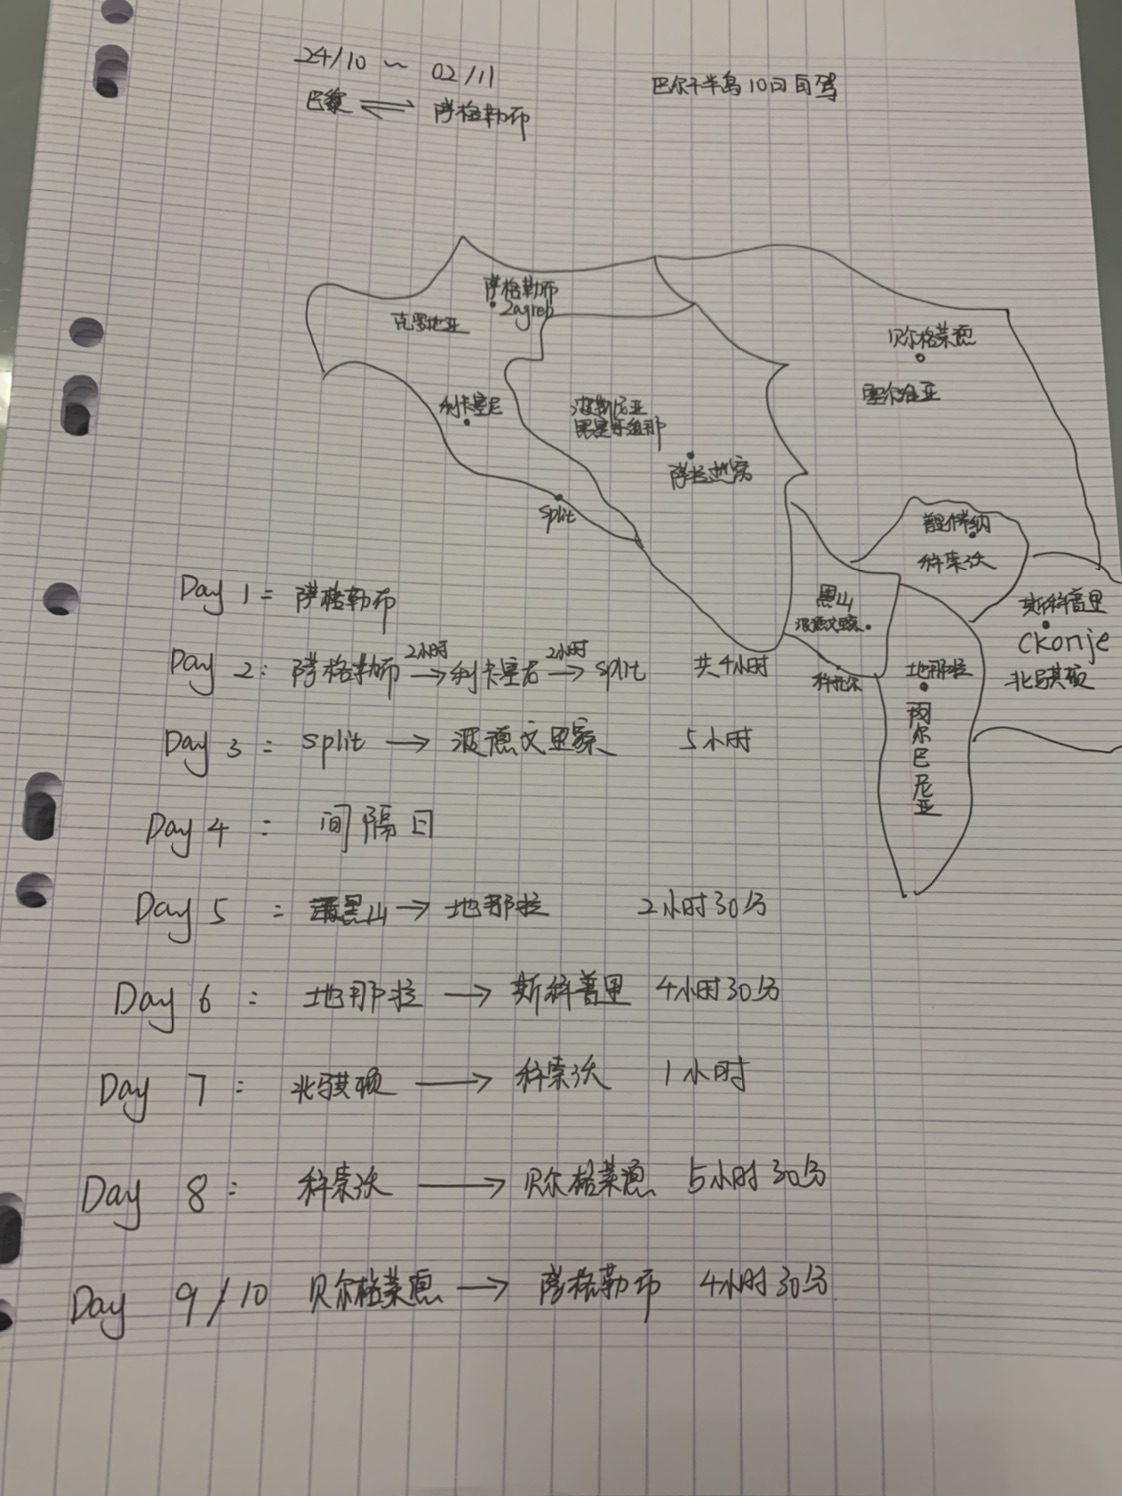 24/10 ~ 02/11
巴尔干半岛10日自驾
巴黎 ⇌ 萨格勒布
萨格勒布
Zagreb
克罗地亚
贝尔格莱德
塞尔维亚
利卡塞尼
波斯尼亚
黑塞哥维那
萨拉热窝
split
普里什蒂纳
科索沃
黑山
波德戈里察
科托尔
斯科普里
Ckonje
北马其顿
地那拉
阿尔巴尼亚
Day 1 = 萨格勒布
Day 2: 萨格勒布 2小时→ 利卡塞尼 2小时→ split 共4小时
Day 3 = split → 波德戈里察 5小时
Day 4 : 间隔日
Day 5 = 黑山 → 地那拉 2小时30分
Day 6 : 地那拉 → 斯科普里 4小时30分
Day 7 : 北马其顿 → 科索沃 1小时
Day 8 : 科索沃 → 贝尔格莱德 5小时30分
Day 9/10 贝尔格莱德 → 萨格勒布 4小时30分